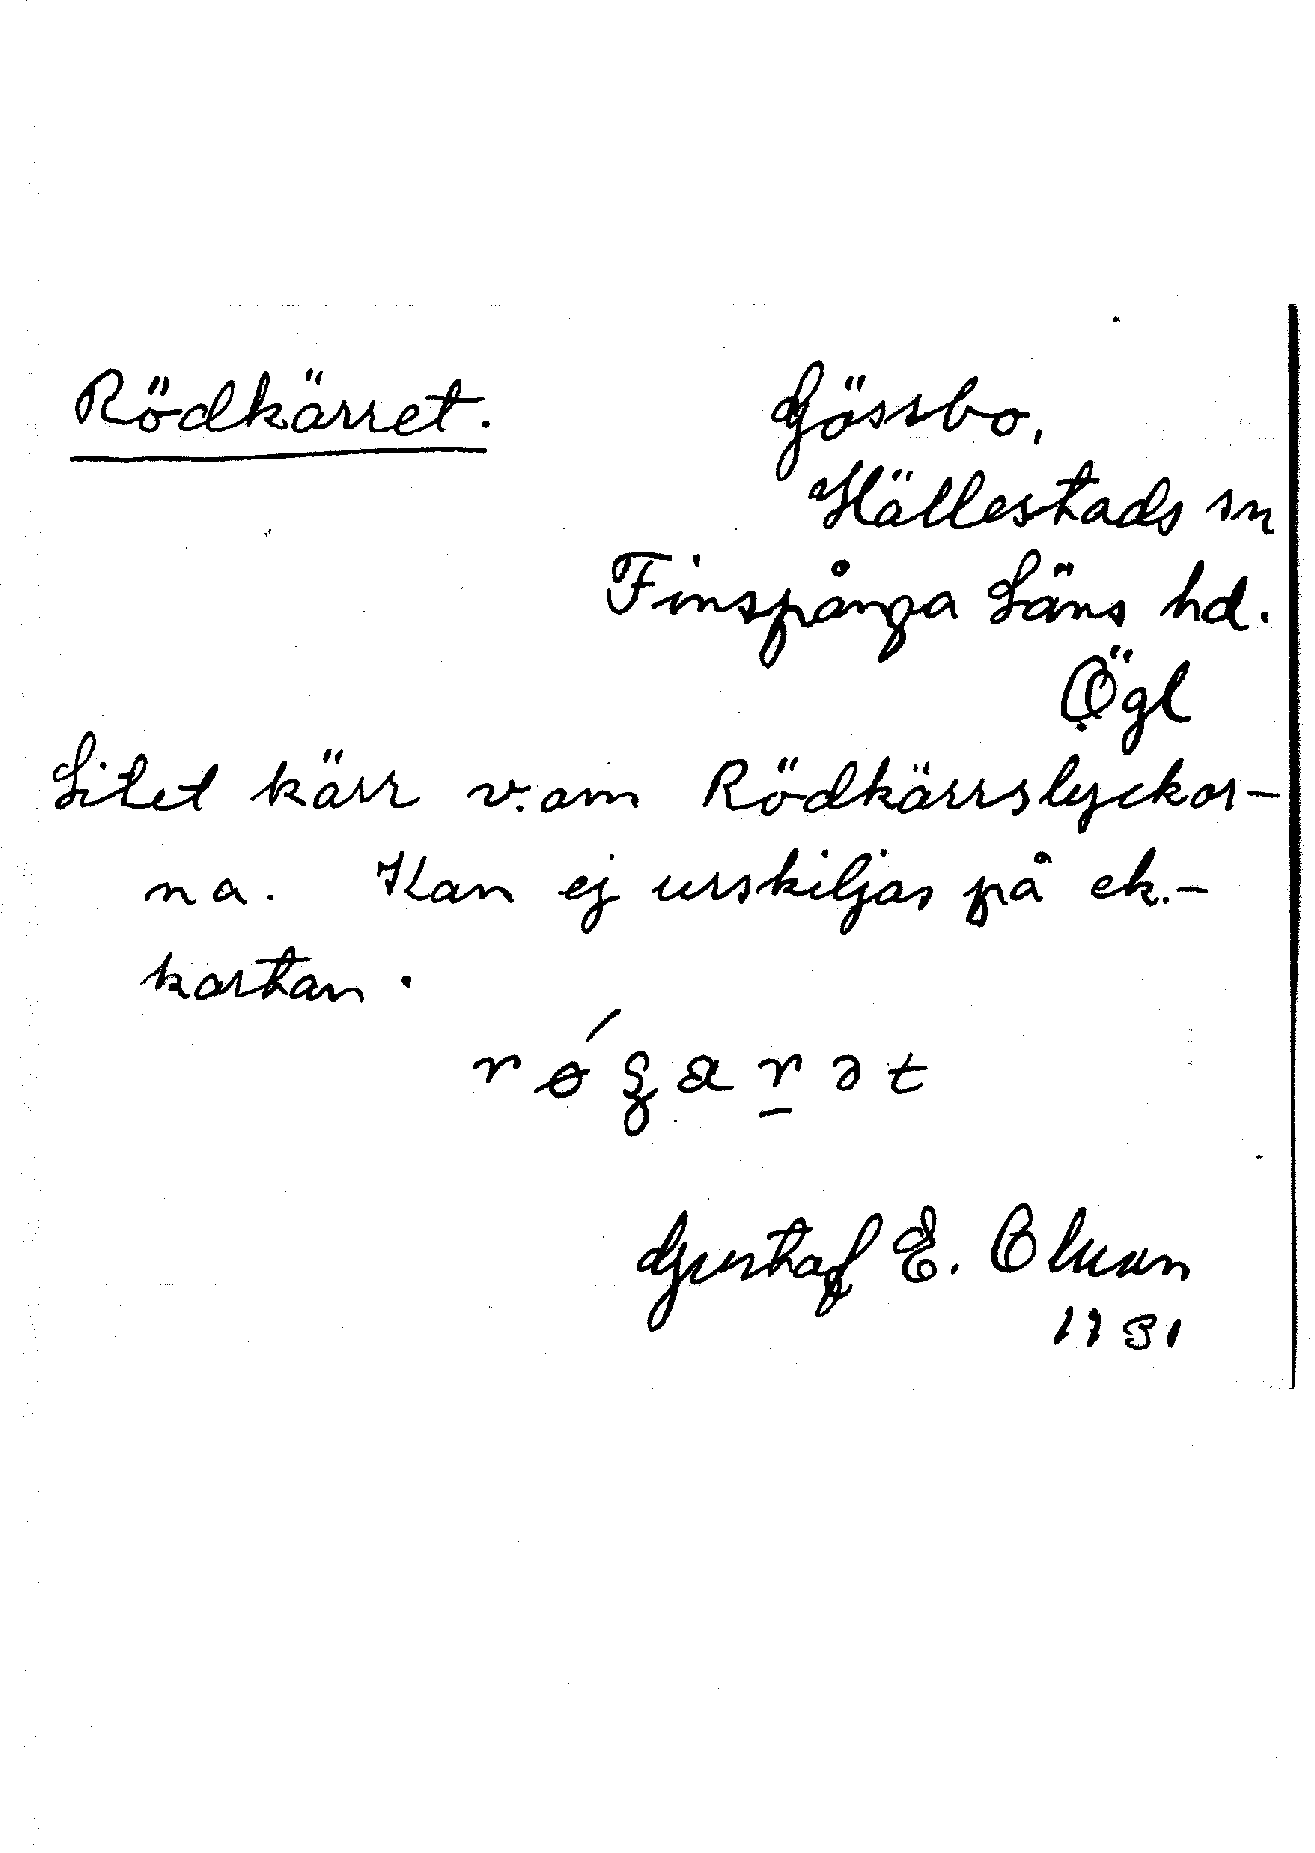 Rödkärret.
Gössbo,
Hällestads sn
Finspånga Läns hd.
Ögl
Litet kärr v.om Rödkärrslyckor-
na. Kan ej urskiljas på ek.-
kartan.
Gustaf E. Olsson
1931